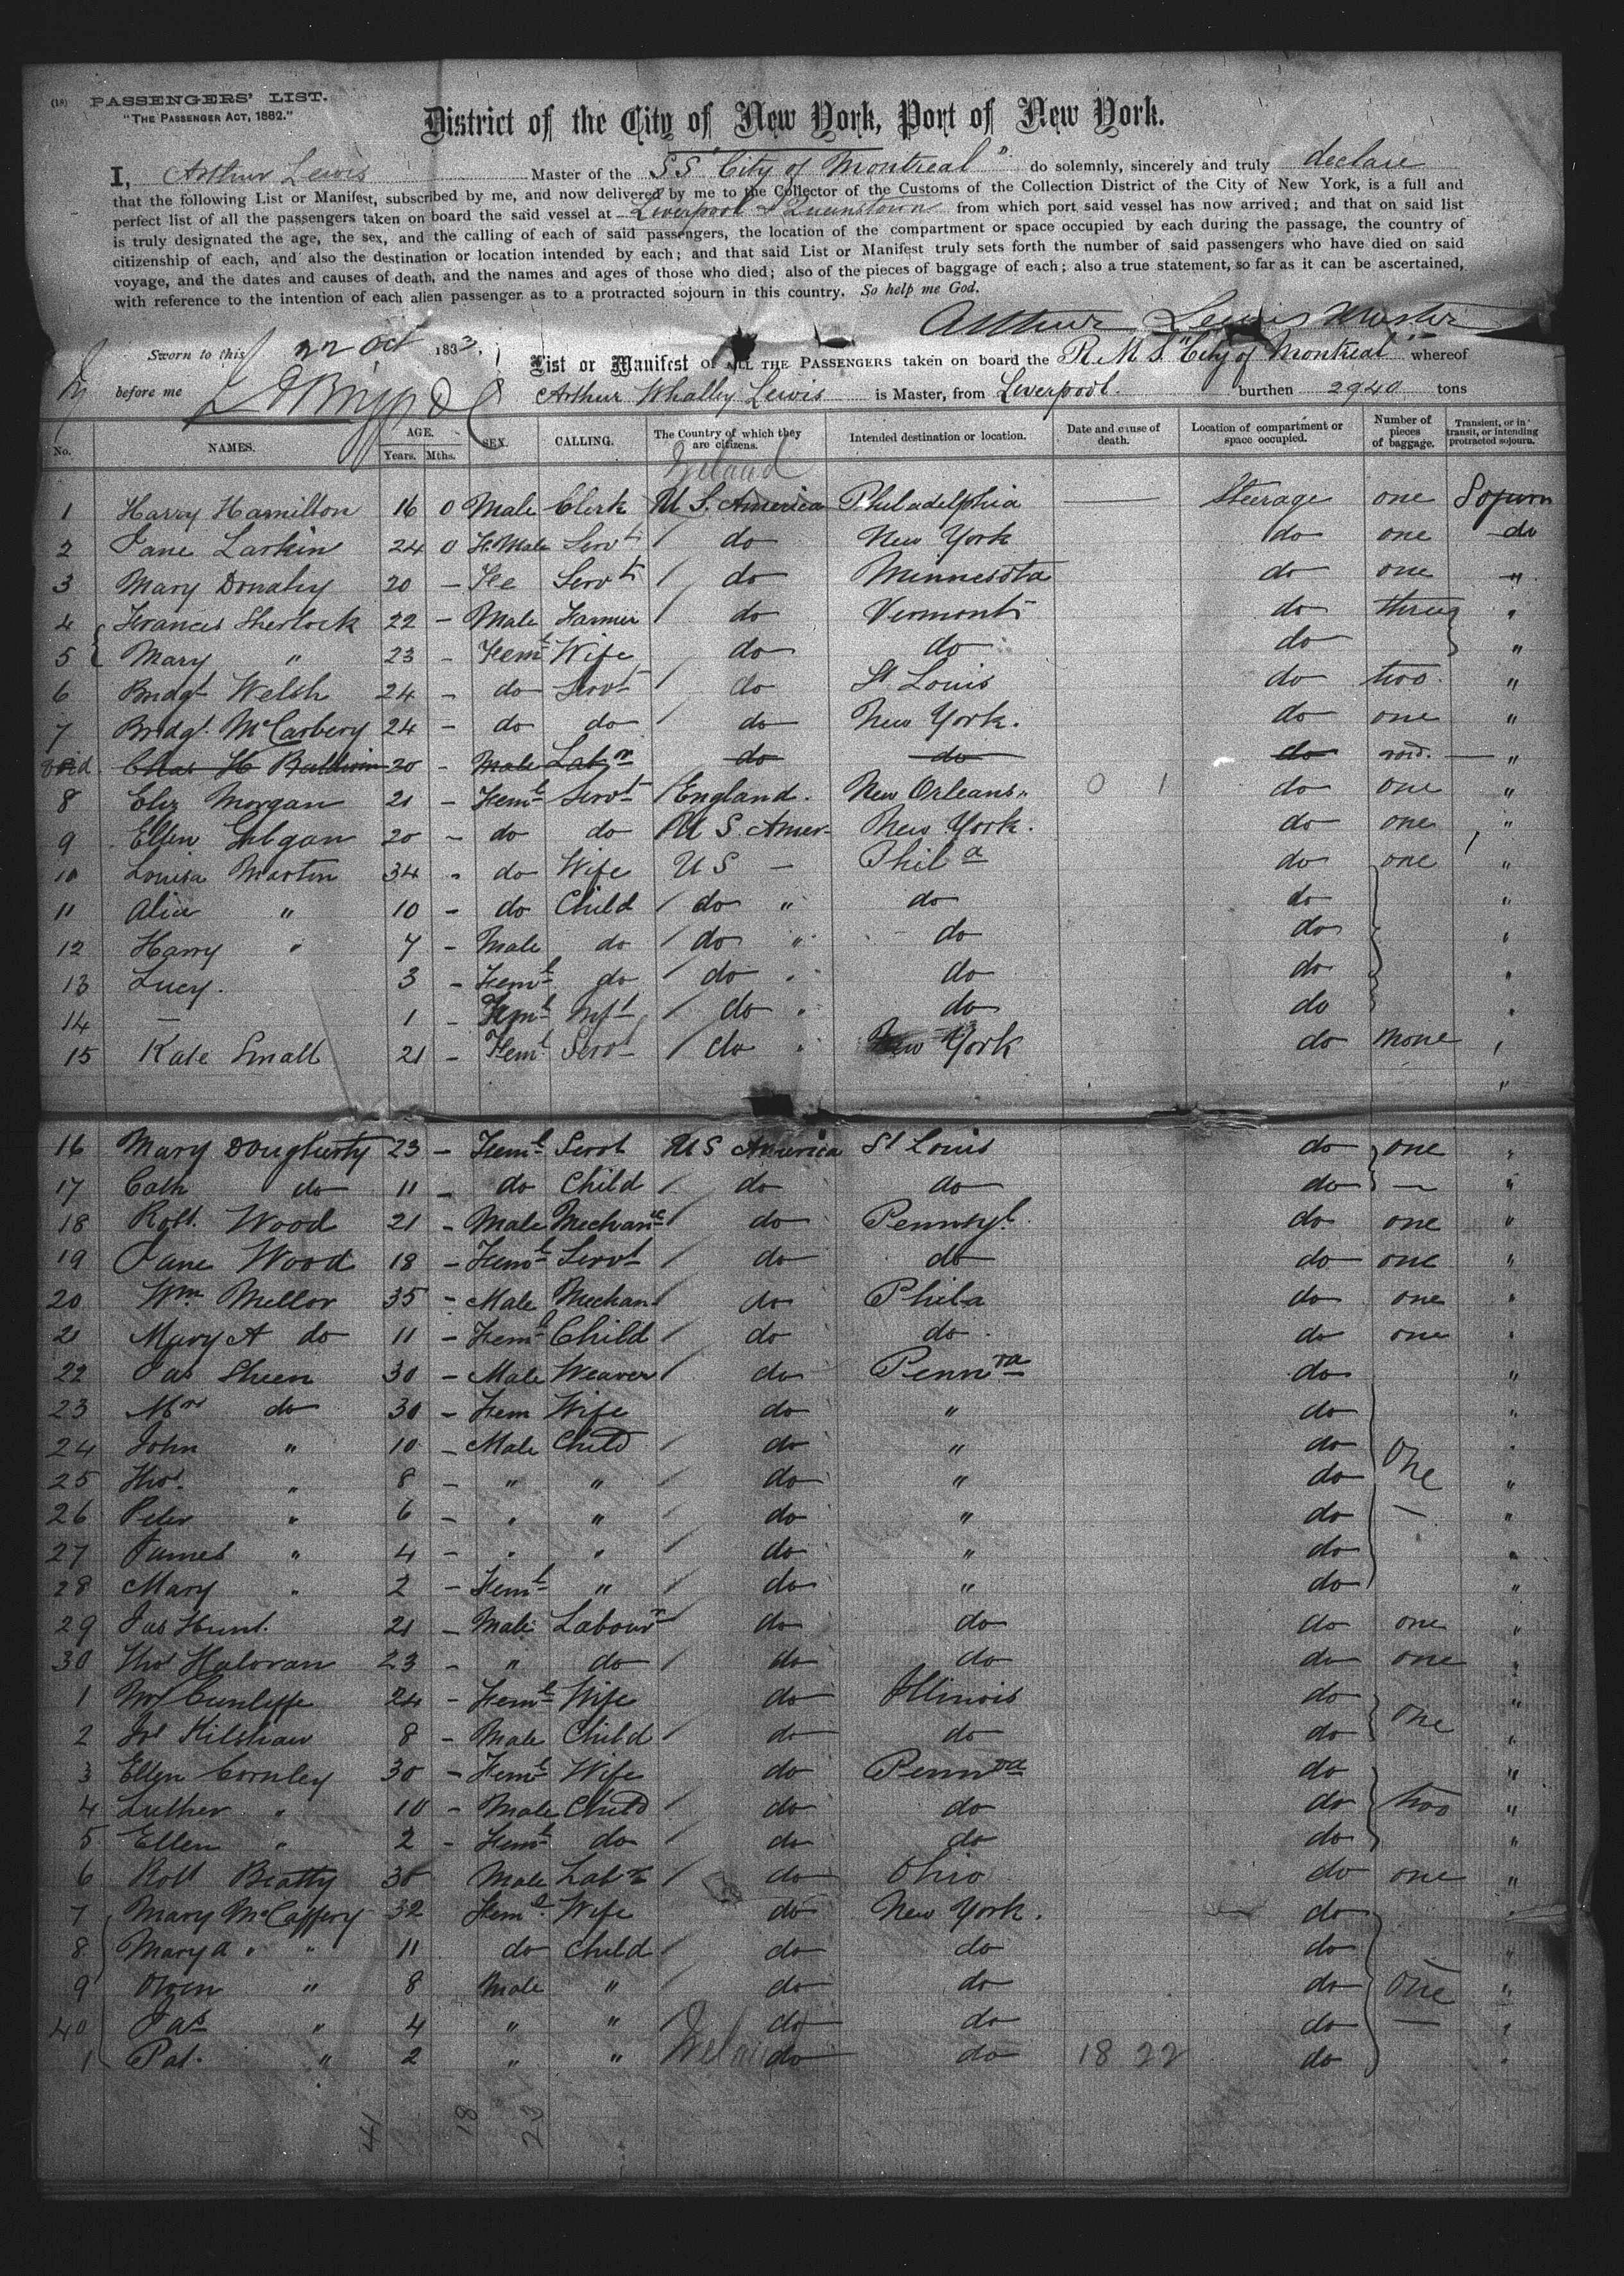 (18) PASSENGERS' LIST.
"THE PASSENGER ACT, 1882."
District of the City of New York, Port of New York.
I, Arthur Lewis Master of the SS "City of Montreal" do solemnly, sincerely and truly declare
that the following List or Manifest, subscribed by me, and now delivered by me to the Collector of the Customs of the Collection District of the City of New York, is a full and
perfect list of all the passengers taken on board the said vessel at Liverpool & Queenstown from which port said vessel has now arrived; and that on said list
is truly designated the age, the sex, and the calling of each of said passengers, the location of the compartment or space occupied by each during the passage, the country of
citizenship of each, and also the destination or location intended by each; and that said List or Manifest truly sets forth the number of said passengers who have died on said
voyage, and the dates and causes of death, and the names and ages of those who died; also of the pieces of baggage of each; also a true statement, so far as it can be ascertained,
with reference to the intention of each alien passenger as to a protracted sojourn in this country. So help me God.
Arthur Lewis Master
Sworn to this 22 Oct 1883.
before me
List or Manifest OF ALL THE PASSENGERS taken on board the R.M.S. "City of Montreal" whereof
Arthur Whalley Lewis is Master, from Liverpool. burthen 2940 tons
No. NAMES. AGE. Years. Mths. SEX. CALLING. The Country of which they are citizens. Intended destination or location. Date and cause of death. Location of compartment or space occupied. Number of pieces of baggage. Transient, or in transit, or intending protracted sojourn.
Ireland
1 Harry Hamilton 16 0 Male Clerk U S. America Philadelphia Steerage one Sojourn
2 Jane Larkin 24 0 Fe.Male Servt do New York do one do
3 Mary Donahy 20 - Fe Servt do Minnesota do one "
4 Francis Sherlock 22 - Male Farmer do Vermont do three "
5 Mary " 23 - Feml Wife do do do "
6 Bridgt Welsh 24 - do Servt do St Louis do two "
7 Bridgt. McCarbery 24 - do do do New York. do one "
void Chas H Baldwin 20 - Male Labr do do do void. "
8 Eliz Morgan 21 - Feml Servt England. New Orleans 0 1 do one "
9 Ellen 20 - do do U S Amer- New York. do one "
10 Louisa Martin 34 - do Wife U S - Phila do one "
11 Alice " 10 - do Child do " do do "
12 Harry " 7 - Male do do " do do "
13 Lucy. 3 - Feml do do " do do "
14 — 1 - Feml Inft do " do do "
15 Kate Small 21 - Feml Servt do " New York do None "
"
16 Mary Dougherty 23 - Feml Servt US America St Louis do one "
17 Cath do 11 - do Child do do do — "
18 Robt. Wood 21 - Male Mechanic do Pennsyl. do one "
19 Jane Wood 18 - Feml Servt do do do one "
20 Wm Mellor 35 - Male Mechan do Phila do one "
21 Mary A do 11 - Feml Child do do do one "
22 Jas Sheen 30 - Male Weaver do Pennva do "
23 Mrs do 30 - Fem Wife do " do "
24 John " 10 - Male Child do " do one "
25 Thos. " 8 - " " do " do "
26 Peter " 6 - " " do " do — "
27 James " 4 - " " do " do "
28 Mary " 2 - Feml " do " do "
29 Jas Hunt. 21 - Male Labourr do do do one "
30 Thos Haloran 23 - " do do do do one "
1 Cunliffe 24 - Feml Wife do Illinois do one "
2 Jos Kilshaw 8 - Male Child do do do "
3 Ellen Cornley 30 - Feml Wife do Pennva do two "
4 Luther " 10 - Male Child do do do "
5 Ellen " 2 - Feml do do do do "
6 Robt Beatty 30 Male Labr do Ohio do one "
7 Mary McCaffery 32 Feml Wife do New York. do "
8 Mary A " " 11 do Child do do do "
9 Owen " 8 Male " do do do one "
40 Jas " 4 " " do do do — "
1 Pat. " 2 " " Ireland do do 18 22 do "
41 18 23